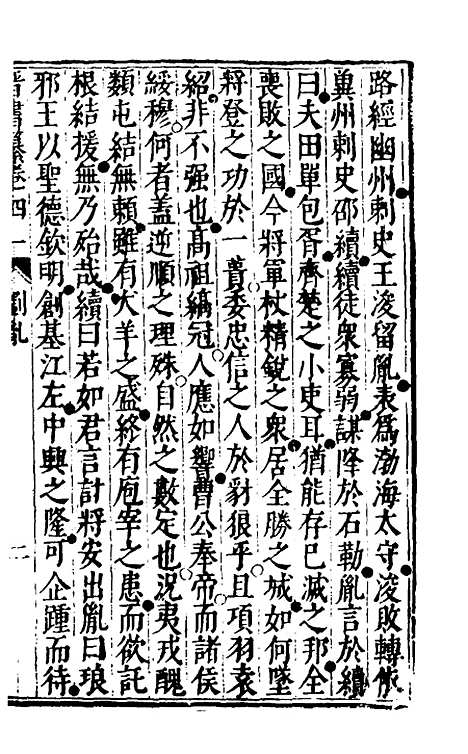 路經幽州剌史王浚留胤表為渤海太守浚敗轉依
冀州剌史邵續續徒衆寡弱謀降於石勒胤言於續
曰夫田單包胥齊楚之小吏耳猶能存已滅之邦全
喪敗之國今將軍杖精銳之衆居全勝之城如何墜
將登之功於一蕢委忠信之人於豺狼乎且項羽袁
紹非不强也高祖縞冠人應如響曹公奉帝而諸侯
綏穆何者蓋逆順之理殊自然之數定也況夷戎醜
類屯結無賴雖有犬羊之盛終有庖宰之患而欲託
根結援無乃殆哉續曰若如君言計將安出胤曰琅
邪王以聖德欽明創基江左中興之隆可企踵而待
晉書纂卷四一 劉胤 二